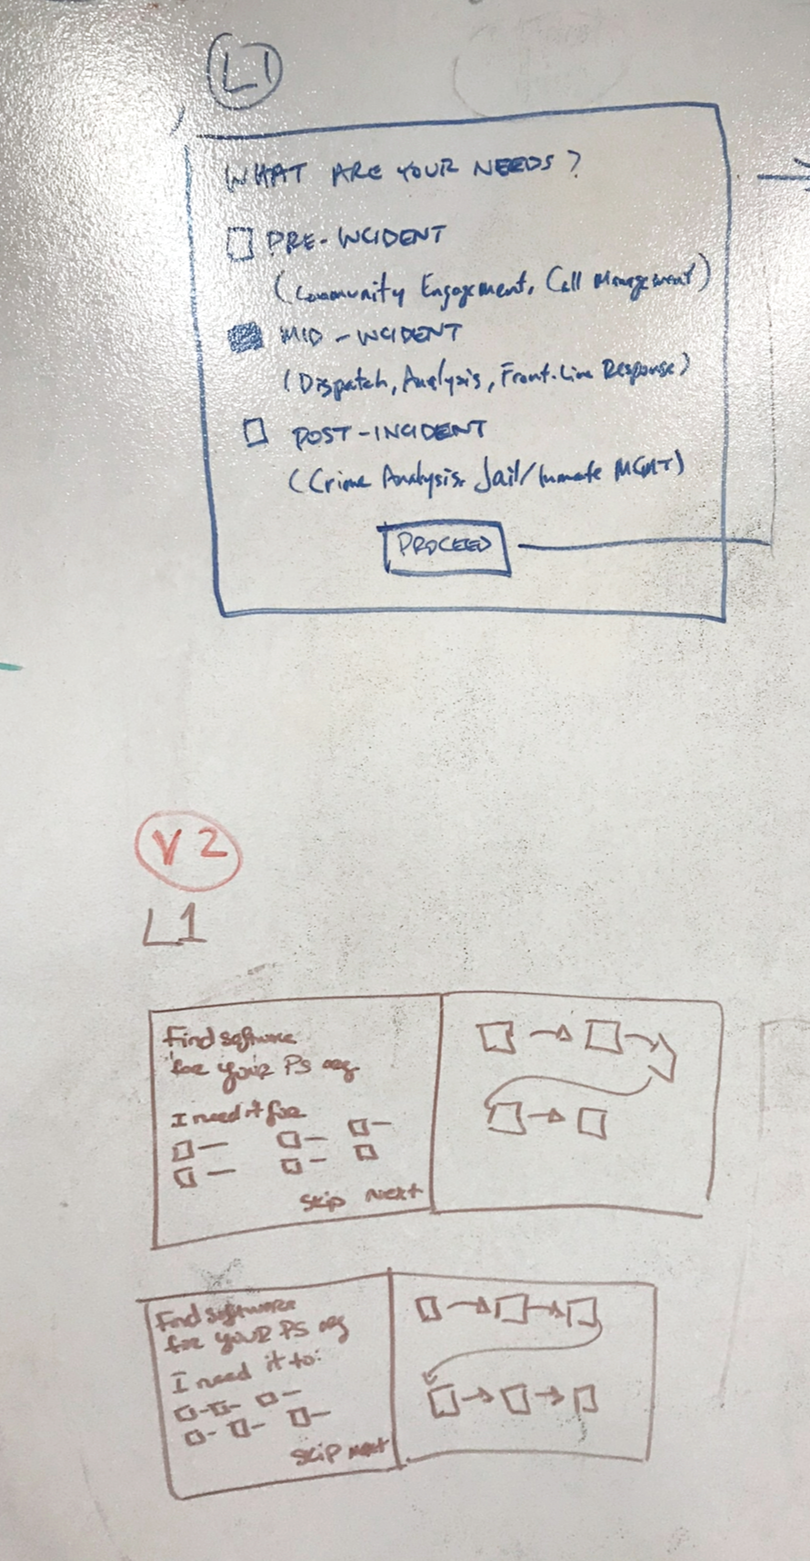 L1
WHAT ARE YOUR NEEDS?
PRE-INCIDENT
(Community Engagement, Call Management)
MID-INCIDENT
(Dispatch, Analysis, Front-Line Response)
POST-INCIDENT
(Crime Analysis, Jail/Inmate MGMT)
PROCEED
V2
L1
Find software
for your PS org
I need it for
Skip Next
Find software
for your PS org
I need it to:
Skip next